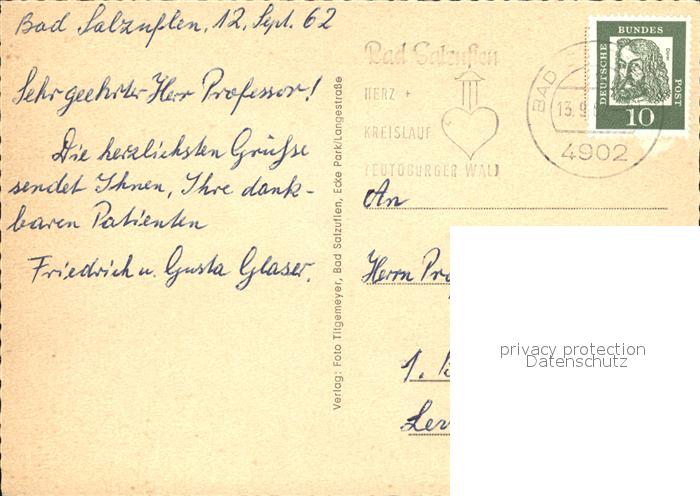 Bad Salzuflen, 12. Sept. 62
Sehr geehrter Herr Professor!
Die herzlichsten Grüsse
sendet Ihnen, Ihre dank-
baren Patienten
Friedrich u. Gusta Glaser.
Verlag: Foto Titgemeyer, Bad Salzuflen, Ecke Park/Langestraße
Bad Salzuflen
HERZ +
KREISLAUF
TEUTOBURGER WALD
BAD
13.9
4902
DEUTSCHE
BUNDES
POST
Dürer
10
An
Herrn
1.
privacy protection
Datenschutz